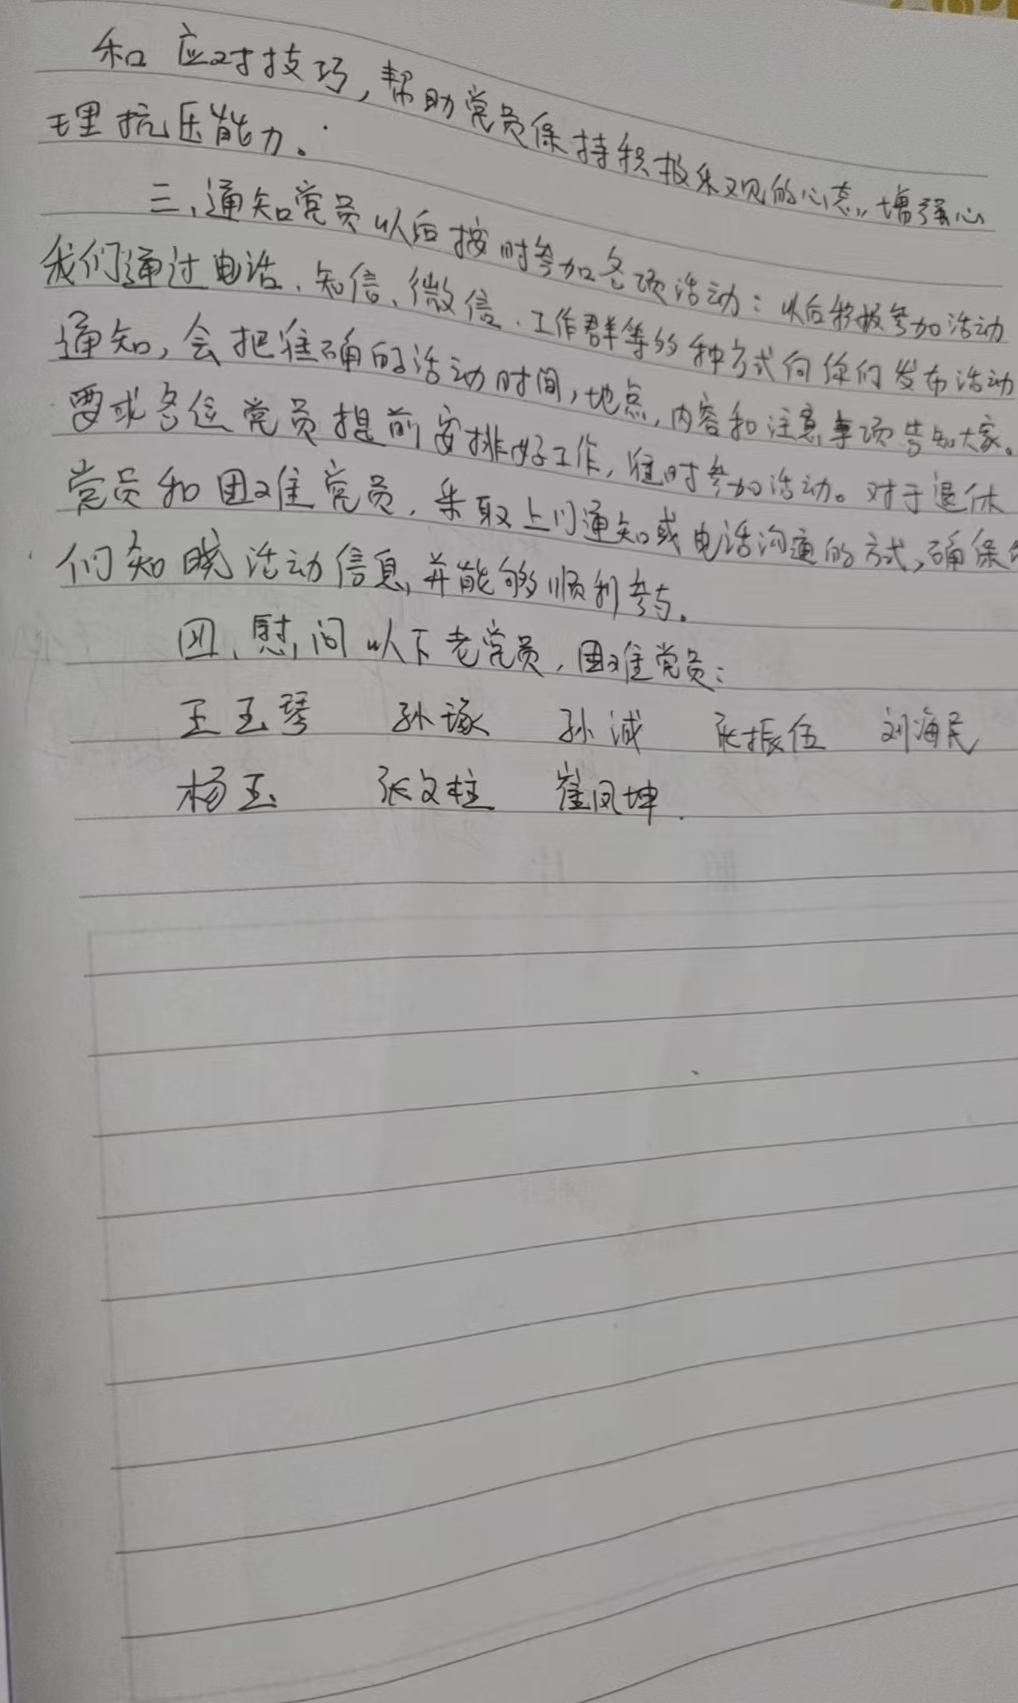 和应对技巧,帮助党员保持积极乐观的心态,增强心
理抗压能力。
三、通知党员以后按时参加各项活动:以后积极参加活动
我们通过电话、知信、微信、工作群等多种方式向你们发布活动
通知,会把准确的活动时间,地点,内容和注意事项告知大家。
要求各位党员提前安排好工作,准时参加活动。对于退休
党员和困难党员,采取上门通知或电话沟通的方式,确保
们知晓活动信息,并能够顺利参与。
四、慰问以下老党员,困难党员:
王玉琴 孙琢 孙诚 张振伍 刘海民
杨玉 张文柱 崔凤坤.